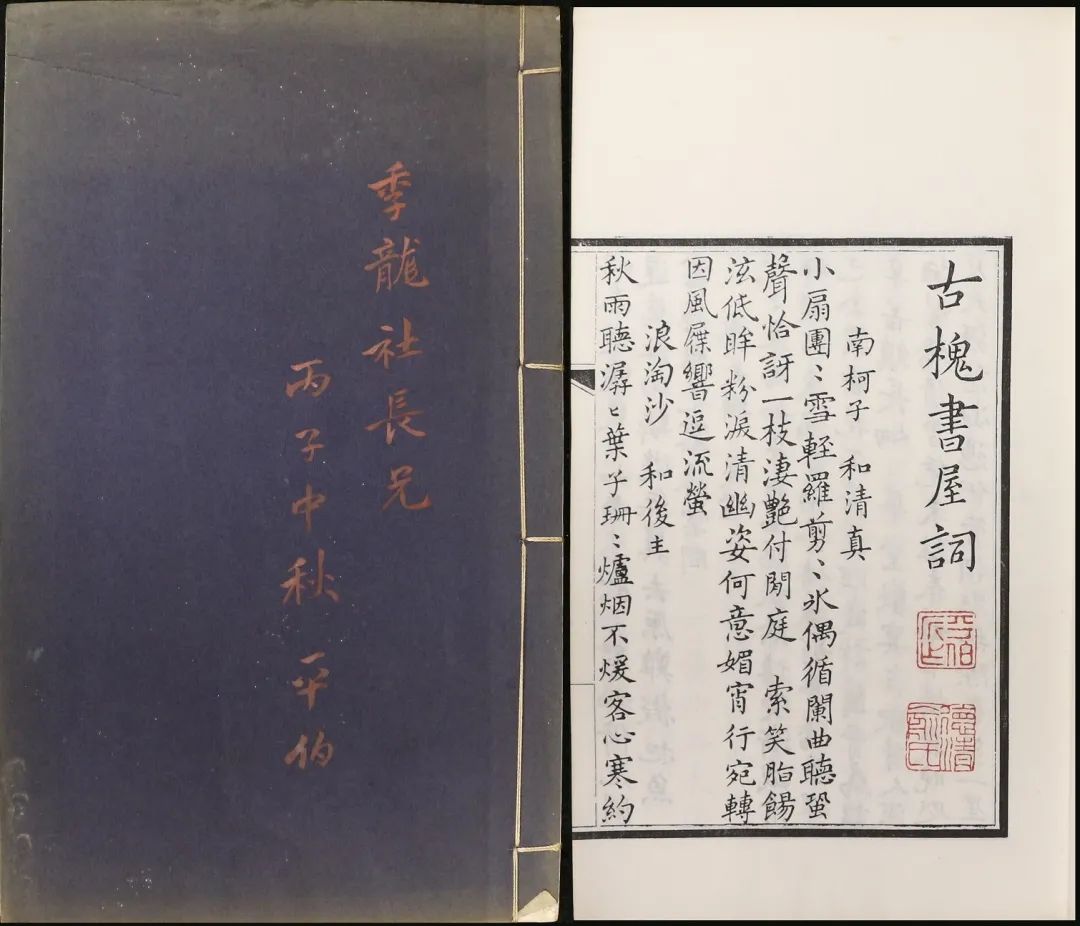 季龍社長兄
丙子中秋 平伯
古槐書屋詞
德清
俞氏
南柯子 和清真
小扇團〻雪輕羅剪〻氷偶循闌曲聽蛩
聲恰訝一枝淒艷付閒庭 索笑脂餳
泫低眸粉淚清幽姿何意媚宵行宛轉
因風屧響逗流螢
浪淘沙 和後主
秋雨聽潺〻葉子珊〻爐烟不煖客心寒約